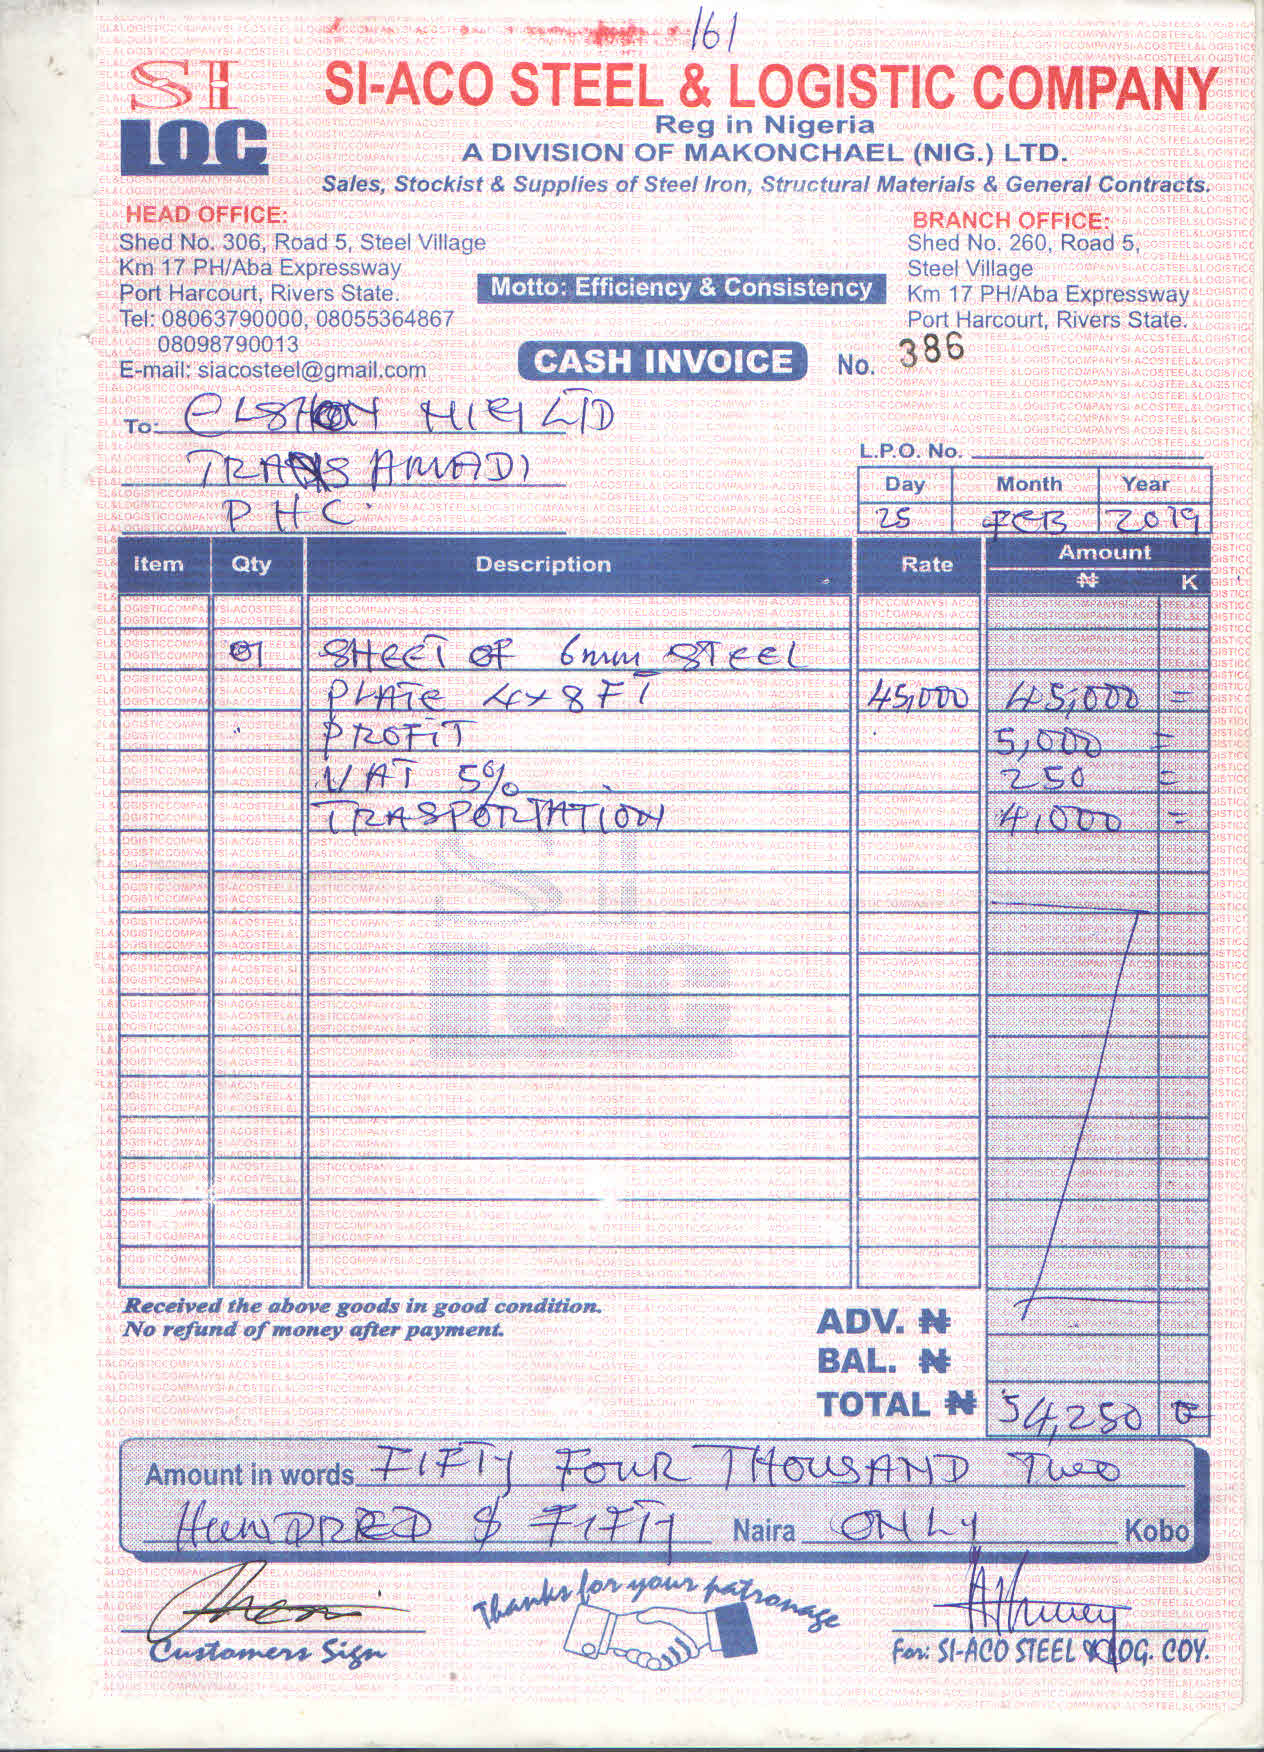 161
SI
LOC
SI-ACO STEEL & LOGISTIC COMPANY
Reg in Nigeria
A DIVISION OF MAKONCHAEL (NIG.) LTD.
Sales, Stockist & Supplies of Steel Iron, Structural Materials & General Contracts.
HEAD OFFICE:
Shed No. 306, Road 5, Steel Village
Km 17 PH/Aba Expressway
Port Harcourt, Rivers State.
Tel: 08063790000, 08055364867
08098790013
E-mail: siacosteel@gmail.com
Motto: Efficiency & Consistency
BRANCH OFFICE:
Shed No. 260, Road 5,
Steel Village
Km 17 PH/Aba Expressway
Port Harcourt, Rivers State.
CASH INVOICE No. 386
To: NIG LTD
TRANS AMADI
PHC.
L.P.O. No.
Day Month Year
25 FEB 2019
Item Qty Description Rate Amount
₦ K
01 SHEET OF 6mm STEEL
PLATE 4x8FT 45,000 45,000 =
PROFIT 5,000 =
VAT 5% 250 =
TRASPORTATION 4,000 =
Received the above goods in good condition.
No refund of money after payment.
ADV. ₦
BAL. ₦
TOTAL ₦ 54,250
Amount in words FIFTY FOUR THOUSAND TWO
HUNDRED & FIFTY Naira ONLY Kobo
Thanks for your patronage
Customers Sign
For: SI-ACO STEEL & LOG. COY.